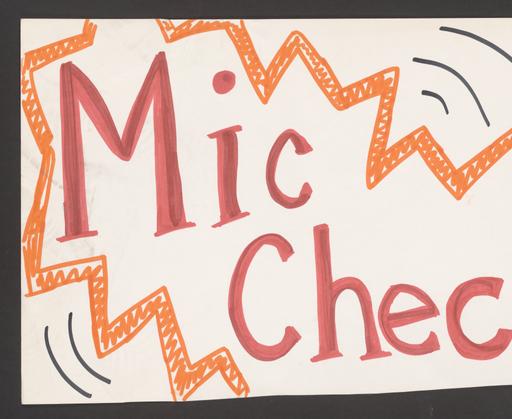 Mic
Chec